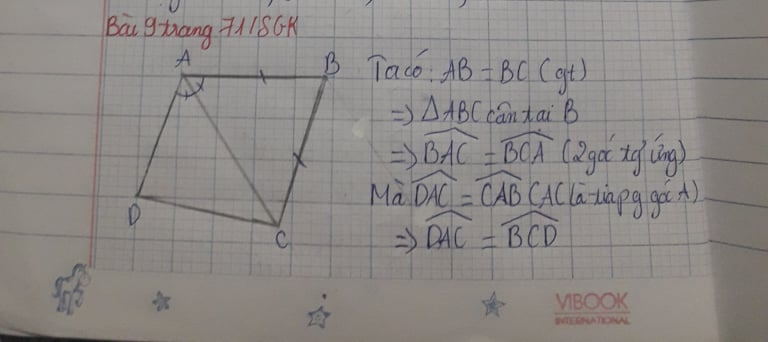 Bài 9 trang 71/SGK
A
B
D
C
Ta có: AB = BC (gt)
=> ΔABC cân tại B
=> BAC = BCA (2 góc tg ứng)
Mà DAC = CAB (AC là tia pg góc A)
=> DAC = BCD
VIBOOK
INTERNATIONAL